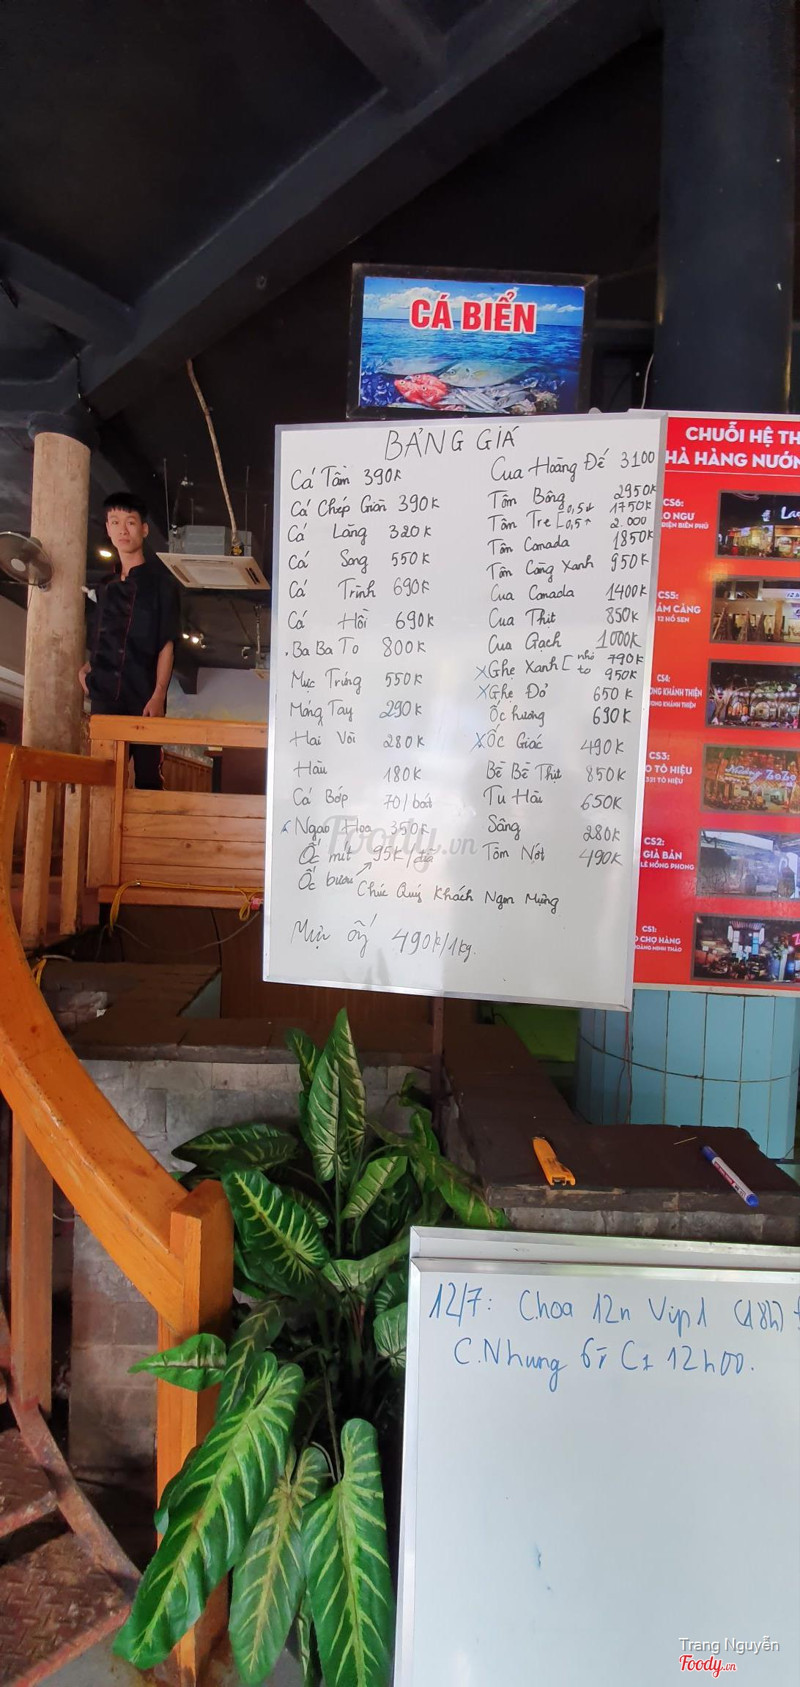 CÁ BIỂN
BẢNG GIÁ
Cá Tầm 390K
Cá Chép Giòn 390K
Cá Lăng 320K
Cá Song 550K
Cá Trình 690K
Cá Hồi 690K
Ba Ba To 800K
Mực Trứng 550K
Móng Tay 290K
Hai Vòi 280K
Hàu 180K
Cá Bớp 70/bát
Ngao Hoa 350K
Ốc mít 95K/đĩa
Ốc bươu
Cua Hoàng Đế 3100
Tôm Bông 2950K
Tôm Tre 0,5↓ 1750K
0,5↑ 2.000
Tôm Canada 1850K
Tôm Càng Xanh 950K
Cua Canada 1400K
Cua Thịt 850K
Cua Gạch 1000K
XGhẹ Xanh [ nhỏ 790K
to 950K
XGhẹ Đỏ 650K
Ốc hương 690K
XỐc Giác 490K
Bề Bề Thịt 850K
Tu Hài 650K
Sâng 280K
Tôm Nớt 490K
Chúc Quý Khách Ngon Miệng
490K/1kg.
CHUỖI HỆ TH
HÀ HÀNG NƯỚN
CS6:
O NGƯ
ĐIỆN BIÊN PHỦ
CS5:
ÁM CẢNG
12 HỒ SEN
CS4:
ONG KHÁNH THIỆN
ONG KHÁNH THIỆN
CS3:
O TÔ HIỆU
321 TÔ HIỆU
CS2:
GIÀ BẢN
LÊ HỒNG PHONG
CS1:
O CHỢ HÀNG
HOÀNG MINH THẢO
12/7: C.hoa 12n Vip1 (18h)
C.Nhung 6n C1 12h00.
Foody.vn
Trang Nguyễn
Foody.vn